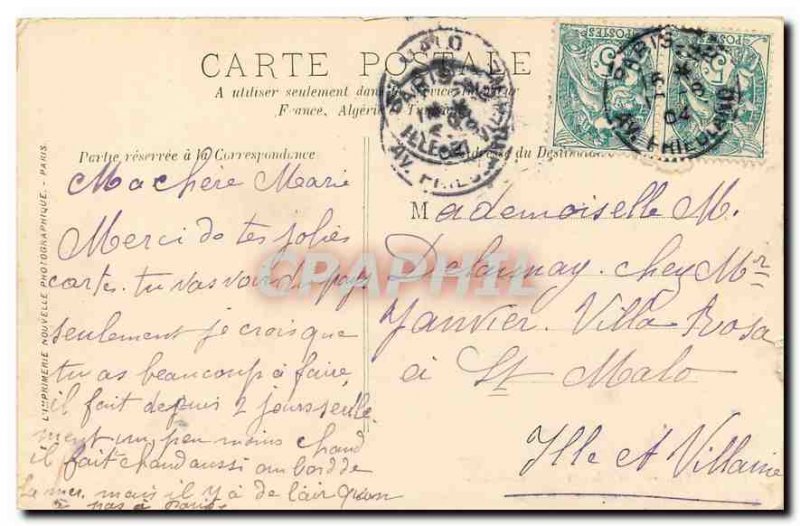 CARTE POSTALE
A utiliser seulement dans le service intérieur
France, Algérie, Tunisie
Partie réservée à la Correspondance
Adresse du Destinataire
Ma chère Marie
Merci de tes jolies
cartes. tu vas voir du pays
seulement je crois que
tu as beaucoup à faire
il fait depuis 2 jours seule
ment un peu moins chaud
il fait chaud aussi au bord de
La mer, mais il y a de l'air que on
pas à Paris
Mademoiselle M.
Delaunay. chez Mr
Janvier. Villa Rosa
à St Malo
Ille et Villaine
L'IMPRIMERIE NOUVELLE PHOTOGRAPHIQUE. - PARIS.
PARIS
AV. FRIEDLAND
02
POSTES
5
5
CPRAPHIL